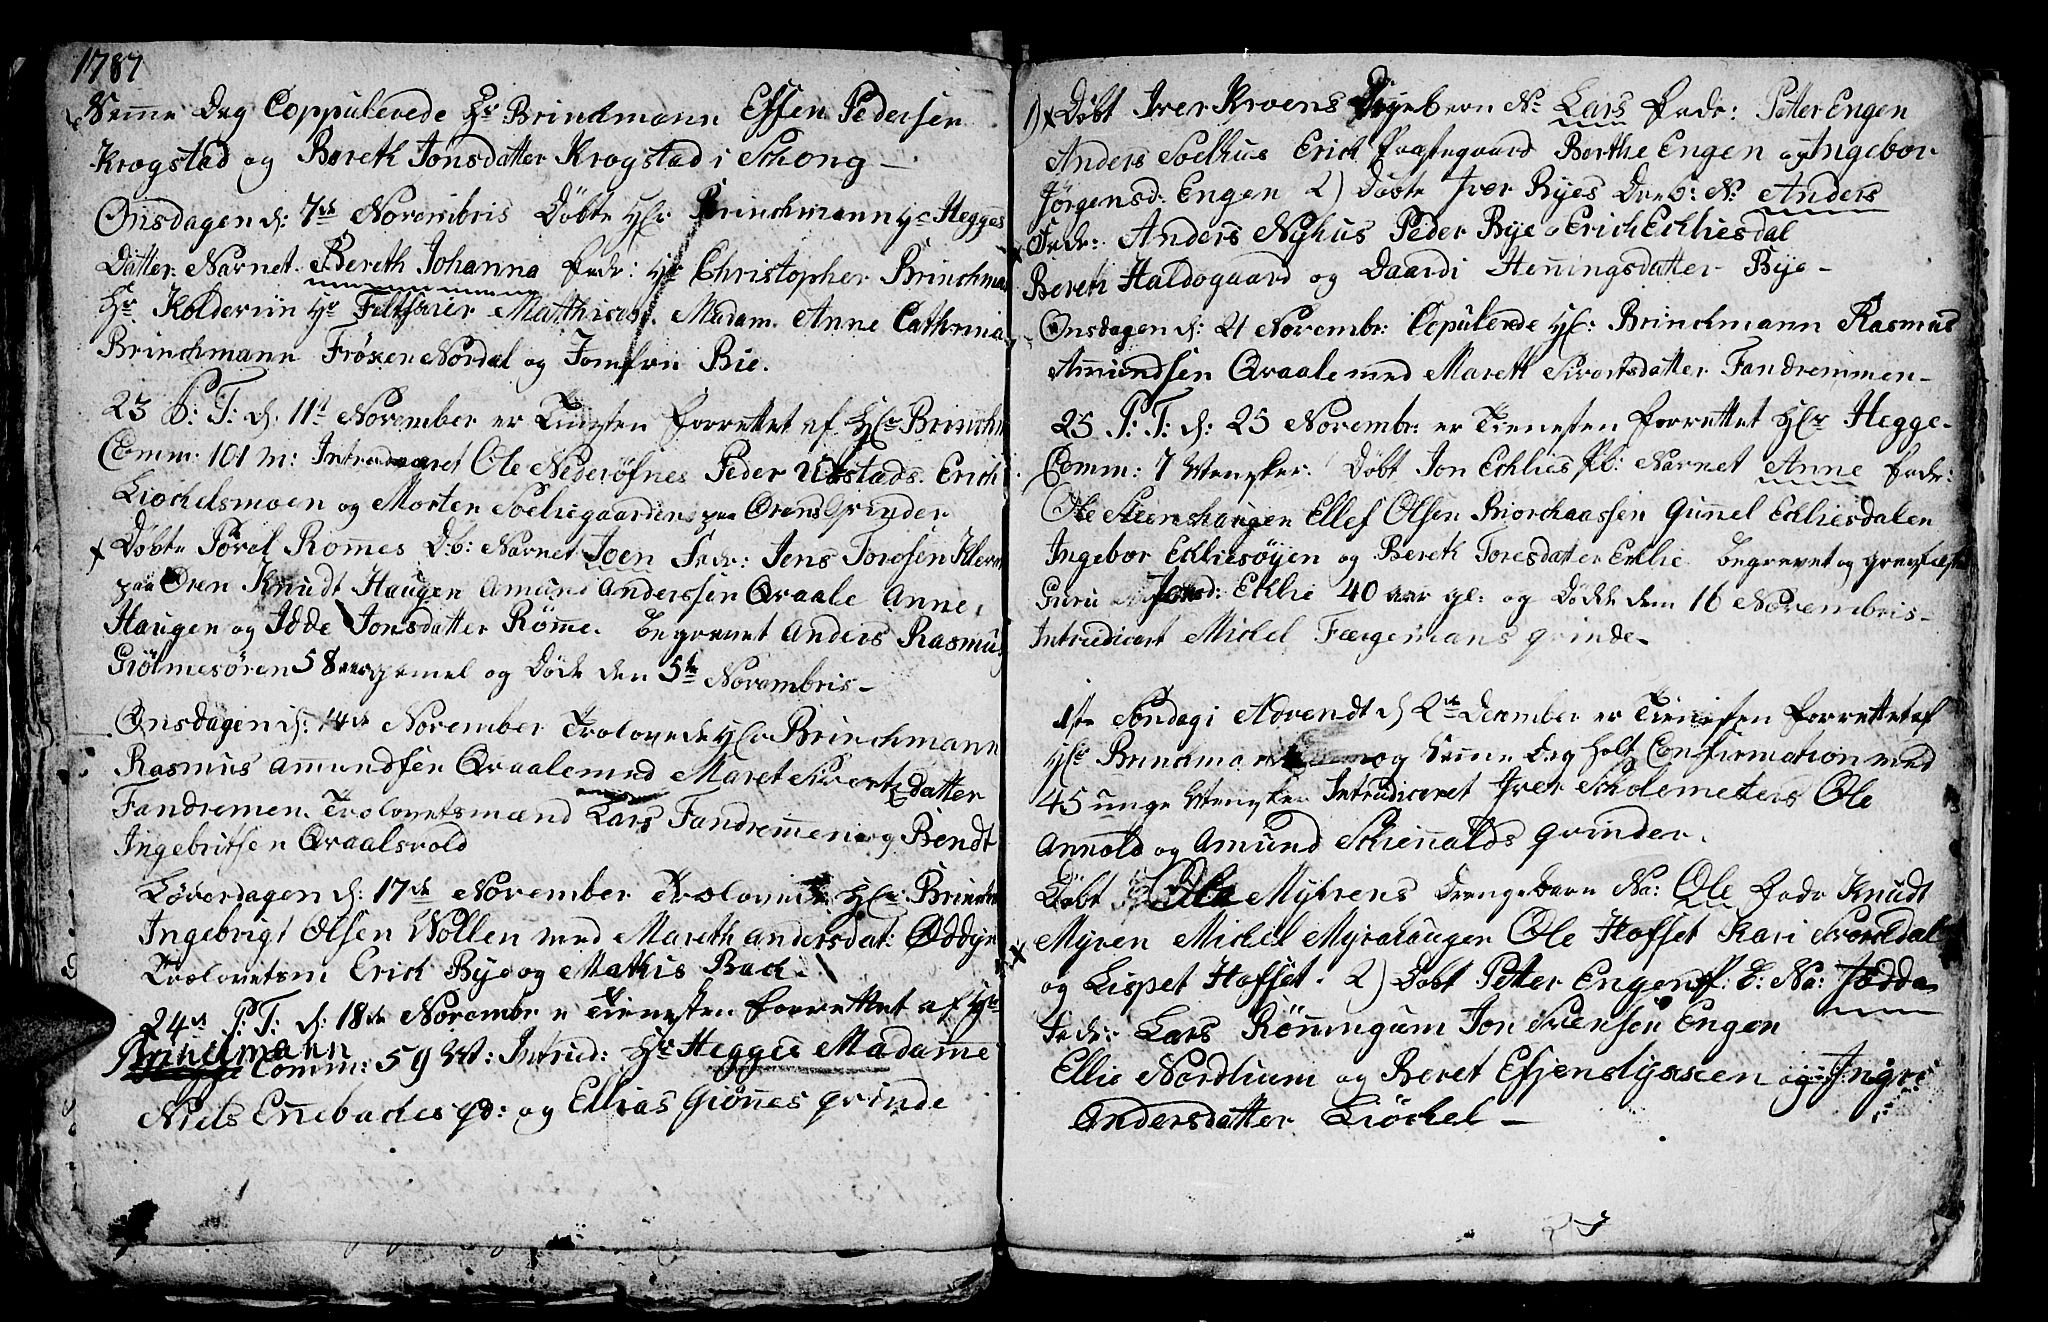 1787
Samme Dag Coppulerede Hr Brinchmann Essen Pedersen
Krogstad og Bereth Jonsdatter Krogstad i Schong —
Onsdagen d: 7de Novembris Døbte Hr: Brinchmann Hr Hegges
Datter. Navnet. Bereth Johanna Fadr: Hr Christopher Brinchma
Hr Kolderiin Hr Feltskiær Matthiesen. Madam. Anne Cathrina
Brinchmann Frøken Nordal og Jomfru Bie.
23 S: T: d. 11te November er Tienesten forrettet af Hr Brinchm
Comm: 101 M: Introduceret Ole Nederøfnes Peder Ustads. Erich
Liøckelsmoen og Morten Soeliegaardens paa Ørens Grinder
x Døbte Joral Rommes Db: Navnet Joen Fadr: Jens Toresen Klever
paa Øren Knudt Haugen Amund Anderssen Qvaale Anne
Haugen og Idde Jonsdatter Rømme. begravet Anders Rasmus
Giølmesøren 58 aar gamel og Døde den 5te Novembris –
Onsdagen d: 14de November Trolovede Hr Brinchmann
Rasmus Ammundsen Qvaale med Maret Sivertsdatter
Fandremen. Trolovetsmænd Lars Fandremmen og Bendt
Ingebritsen Qvaalsvold
Løverdagen d: 17de November Trolovede Hr: Brinchm
Ingebrigt Olsen Wollen med Mareth Andersdat: Oddyr
Trolovetsm Erich Bye og Mathis Bach.
24de S. T. d: 18de Novembr er Tienesten forrettet af Hr
Brinchmann
Hegge Comm: 59 M: Introd: Hr Hegges Madamme
Niels Enebackes qd: og Ellias Giønnes qvinde
1) x Døbt Iver Kroens Pigebarn N: Lars Fadr: Petter Engen
Anders Soelhus Erich Præstegaard Berthe Engen og Ingebor
Jørgensd: Engen 2) Døbte Iver Byes Dreb: N: Anders
x Fadr: Anders Nyhus Peder Bye Erich Echliesdal
Bereth Haldogaard og Daardi Henningsdatter Bye –
Onsdagen d: 21 Novembr: Copulerede Hr: Brinchmann Rasmus
Ammundsen Qvaale med Mareth Sivertsdatter Fandremmen –
25 S: T: d: 25 Novembr: er Tienesten forrettet Hr Hegge –
Comm: 7 Mensker. Døbt Jon Echlies Pb: Navnet Anne Fadr:
Ole Steenshaugen Ellef Olsen Biorchaassen Gunnel Echliesdalen
Ingebor Echliesøyen og Bereth Toresdatter Echlie begravet og gravfæstet
Guru Jonsd: Echlie 40 aar gl: og Døde dem 16 Novembris –
Introdicert Michel Færgemans qvinde –
1ste Søndag i Advendt d 2de December er Tienesten forrettet af
Hr Brinchmann og samme Dag holt Confirmation med
45 unge Mensker Introdiceret Iver Scholemesters Ole
Annold og Amund Schienalds qvinder.
Døbt Ole Myhrens Drengebarn Na: Ole Fadr Knudt
x Myren Michel Myrahaugen Ole Hofset Kari Svorldal
og Lispet Hofset. 2) Døbt Petter Engens P: B: Na: Jødda
Fadr: Lars Rønningum Jon Svensen Engen
Ellie Nordtium og Beret Essenslyskeen og Ingri
Andersdatter Liøchel –